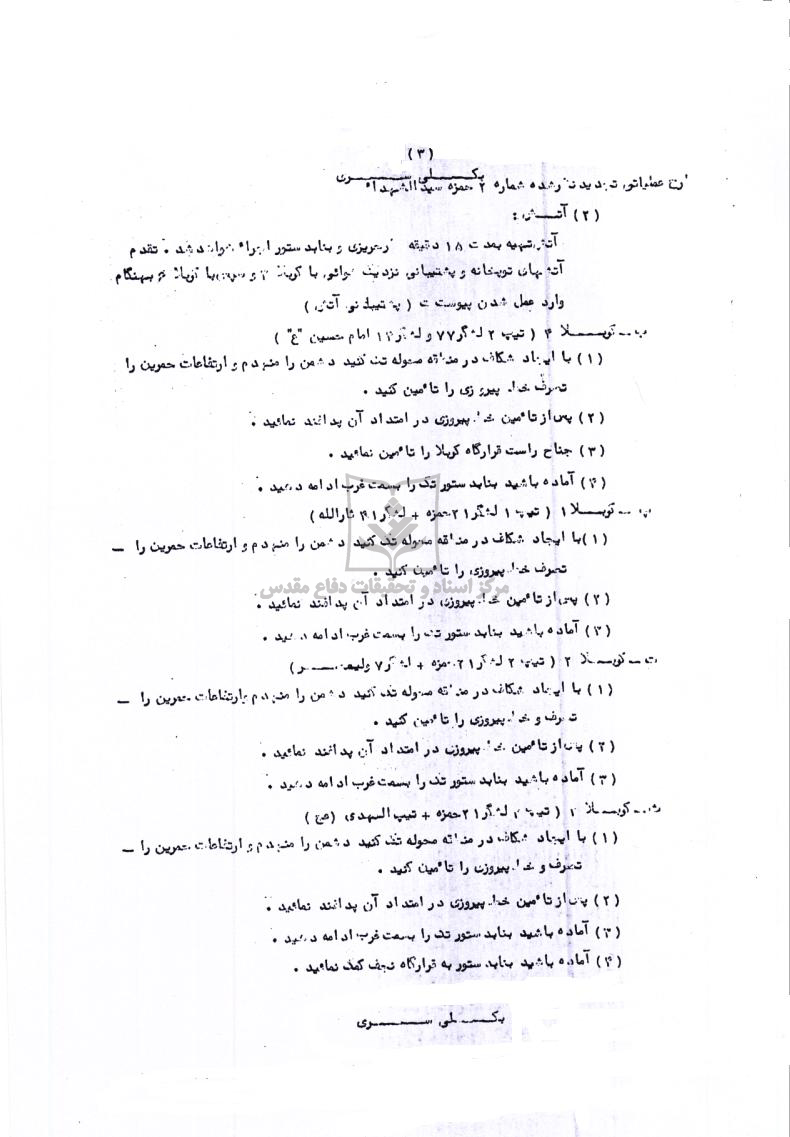 (۳)
بکــلی ســــری
طرح عملیاتی تجدید نظر شده شماره ۲ حمزه سیدالشهداء
(۲) آتــش :
آتش تهیه بمدت ۱۵ دقیقه طرحریزی و بنابدستور اجراء خواهد شد . تقدم
آتشهای توپخانه و پشتیبانی نزدیک هوائی با کربلا ۳ و سپس با کربلا ۶ بهنگام
وارد عمل شدن پیوست ت ( پشتیبانی آتش )
ب ــ کربــلا ۴ ( تیپ ۲ لشگر ۷۷ و لشگر ۱۴ امام حسین "ع" )
(۱) با ایجاد شکاف در منطقه محوله تک کنید دشمن را منهدم و ارتفاعات حمرین را
تصرف خط پیروزی را تأمین کنید .
(۲) پس از تأمین خط پیروزی در امتداد آن پدافند نمائید .
(۳) جناح راست قرارگاه کربلا را تأمین نمائید .
(۴) آماده باشید بنابدستور تک را بسمت غرب ادامه دهید .
پ ــ کربــلا ۱ ( تیپ ۱ لشگر ۲۱ حمزه + لشگر ۴۱ ثارالله )
(۱) با ایجاد شکاف در منطقه محوله تک کنید دشمن را منهدم و ارتفاعات حمرین را ــ
تصرف خط پیروزی را تأمین کنید .
مرکز اسناد و تحقیقات دفاع مقدس
(۲) پس از تأمین خط پیروزی در امتداد آن پدافند نمائید .
(۳) آماده باشید بنابدستور تک را بسمت غرب ادامه دهید .
ت ــ کربــلا ۲ ( تیپ ۲ لشگر ۲۱ حمزه + لشگر ۷ ولیعصــر )
(۱) با ایجاد شکاف در منطقه محوله تک کنید دشمن را منهدم و ارتفاعات حمرین را ــ
تصرف و خط پیروزی را تأمین کنید .
(۲) پس از تأمین خط پیروزی در امتداد آن پدافند نمائید .
(۳) آماده باشید بنابدستور تک را بسمت غرب ادامه دهید .
ث ــ کربــلا ( تیپ لشگر ۲۱ حمزه + تیپ المهدی (عج)
(۱) با ایجاد شکاف در منطقه محوله تک کنید دشمن را منهدم و ارتفاعات حمرین را ــ
تصرف و خط پیروزی را تأمین کنید .
(۲) پس از تأمین خط پیروزی در امتداد آن پدافند نمائید .
(۳) آماده باشید بنابدستور تک را بسمت غرب ادامه دهید .
(۴) آماده باشید بنابدستور به قرارگاه نجف کمک نمائید .
بکــلی ســــری